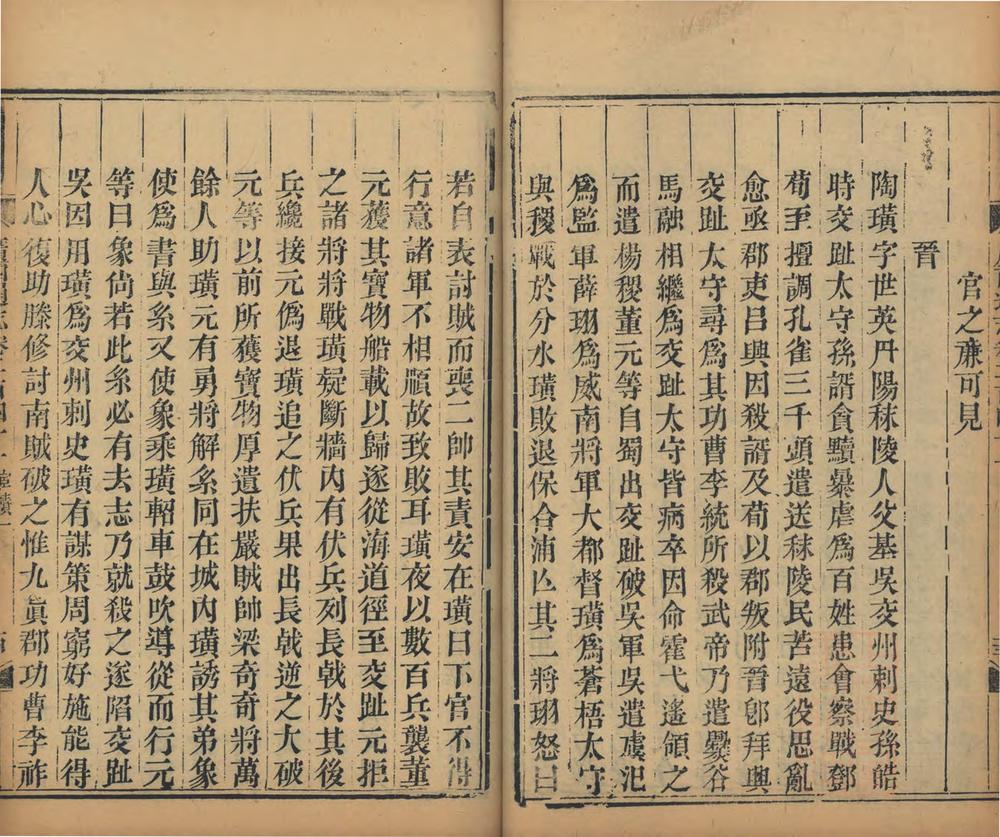 官之亷可見
晉
陶璜字世英丹陽秣陵人父基吳交州刺史孫皓
時交趾太守孫諝貪黷暴虐爲百姓患會察戰鄧
荀至擅調孔雀三千頭遣送秣陵民苦遠役思亂
愈亟郡吏呂興因殺諝及荀以郡叛附晉卽拜興
交趾太守尋爲其功曹李統所殺武帝乃遣爨谷
馬融相繼爲交趾太守皆病卒因命霍弋遙領之
而遣楊稷董元等自蜀出交趾破吳軍吳遣虞汜
爲監軍薛珝爲威南將軍大都督璜爲蒼梧太守
與稷戰於分水璜敗退保合浦亡其二將珝怒曰
若自表討賊而喪二帥其責安在璜曰下官不得
行意諸軍不相順故致敗耳璜夜以數百兵襲董
元獲其寶物船載以歸遂從海道徑至交趾元拒
之諸將將戰璜疑斷牆內有伏兵列長戟於其後
兵纔接元僞退璜追之伏兵果出長戟逆之大破
元等以前所獲寶物厚遺扶嚴賊帥梁奇奇將萬
餘人助璜元有勇將解系同在城內璜誘其弟象
使爲書與系又使象乘璜軺車鼓吹導從而行元
等曰象尙若此系必有去志乃就殺之遂陷交趾
吳因用璜爲交州刺史璜有謀策周窮好施能得
人心復助滕修討南賊破之惟九眞郡功曹李祚